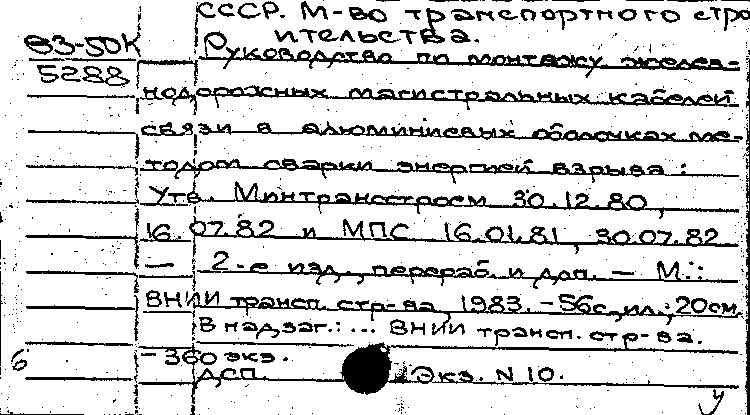 СССР. М-во транспортного стро
ительства.
83-50К
Руководство по монтажу желез-
5288
нодорожных магистральных кабелей
связи в алюминиевых оболочках ме-
тодом сварки энергией взрыва :
Утв. Минтрансстроем 30.12.80,
16.07.82 и МПС 16.01.81, 30.07.82
— 2-е изд., перераб. и доп. — М.:
ВНИИ трансп. стр-ва, 1983. -56с., ил.; 20см.
В надзаг.: ... ВНИИ трансп. стр-ва.
- 360 экз.
б
ДСП. Экз. N 10.
у